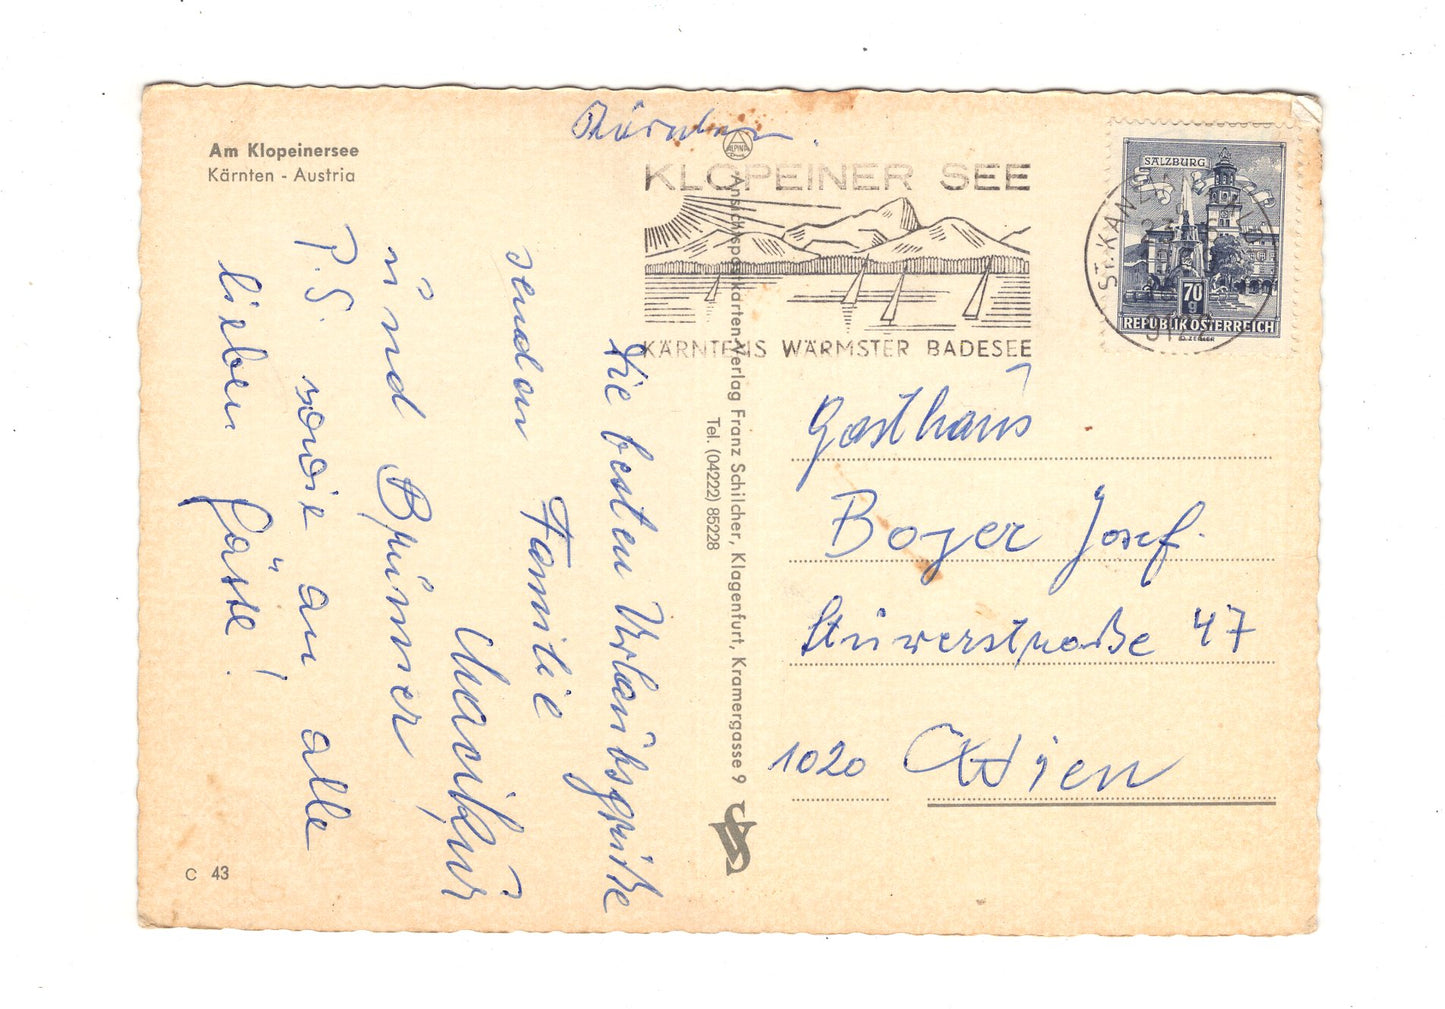 Am Klopeinersee
Kärnten - Austria
Kärnten.
ALPINA
KLOPEINER SEE
KÄRNTENS WÄRMSTER BADESEE
SALZBURG
70
g
REPUBLIK ÖSTERREICH
ST. KANZIAN
9122
Die besten Urlaubsgrüße
senden Familie
und Brunner
P.S. sowie an alle
lieben Gäste!
Ansichtspostkarten-Verlag Franz Schilcher, Klagenfurt, Kramergasse 9
Tel. (04222) 85228
Gasthaus
Boyer Josef.
Stuwerstraße 47
1020 Wien
C 43